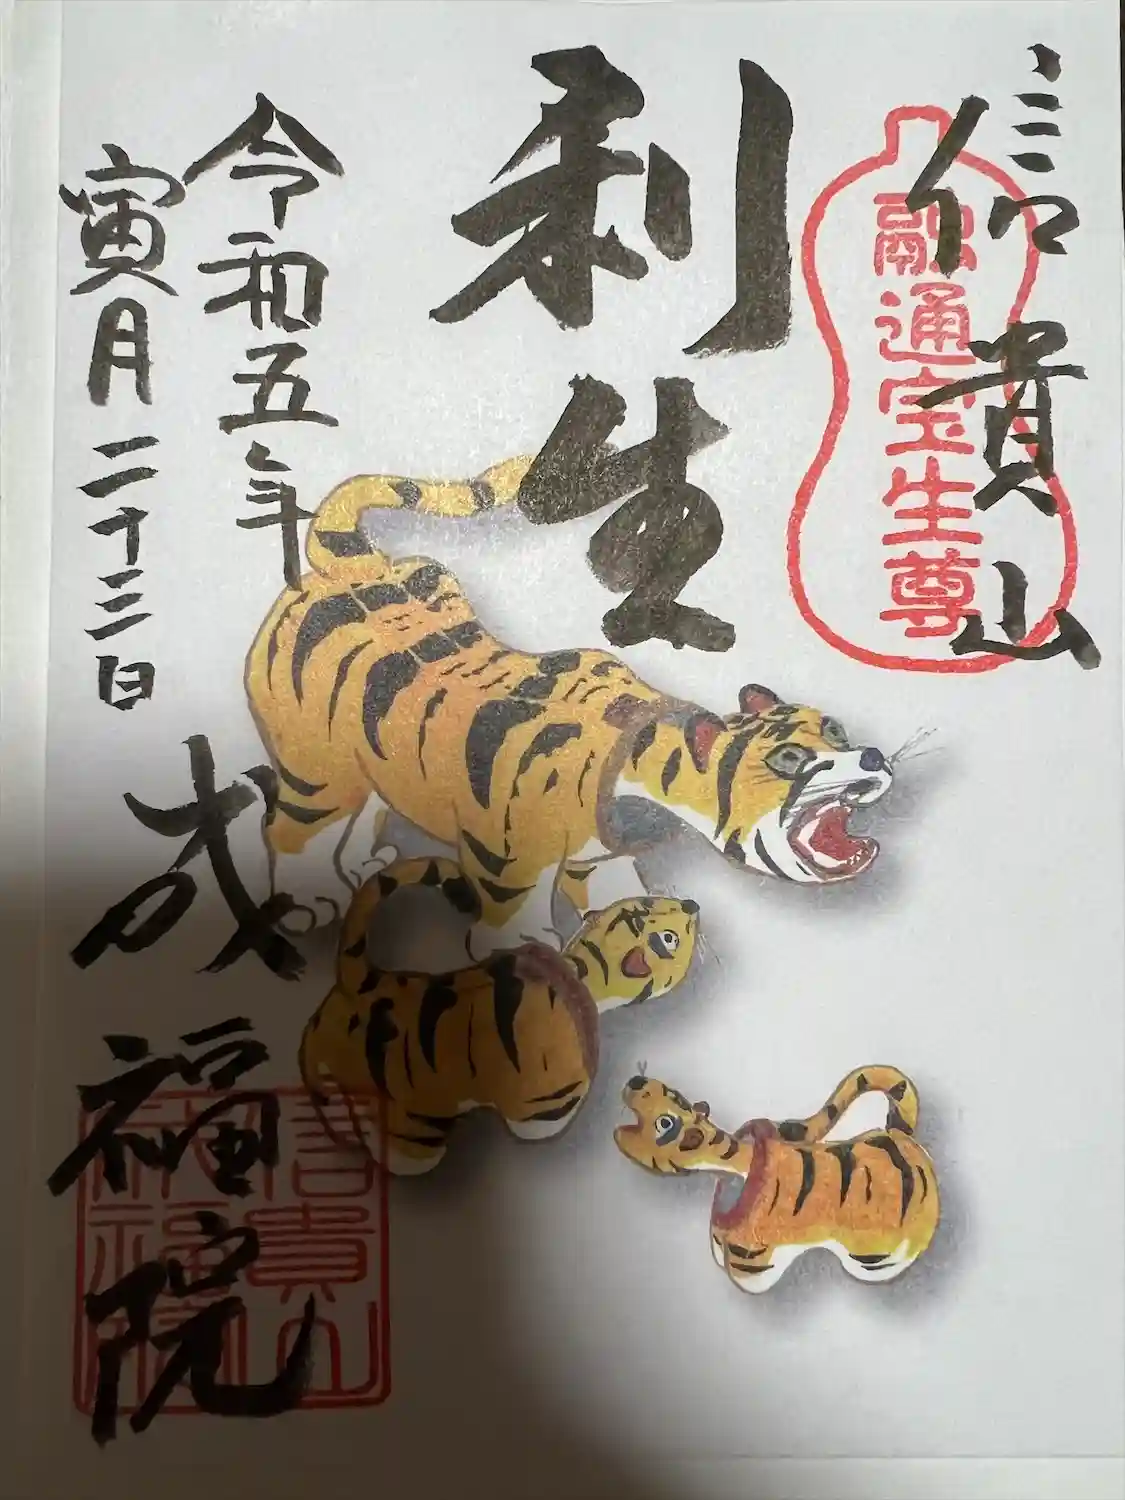 信貴山
融通宝生尊
利生
令和五年
寅月二十三日
成福院
信貴山
成福院